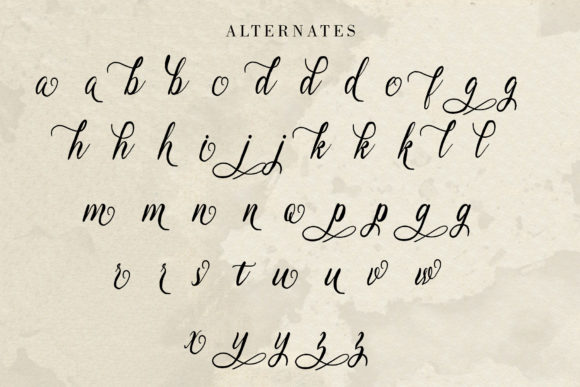 ALTERNATES
a a b b c d d d e f g g
h h h i j j k k k l l
m m n n o p p q q
r r s t u u v w
x y y z z